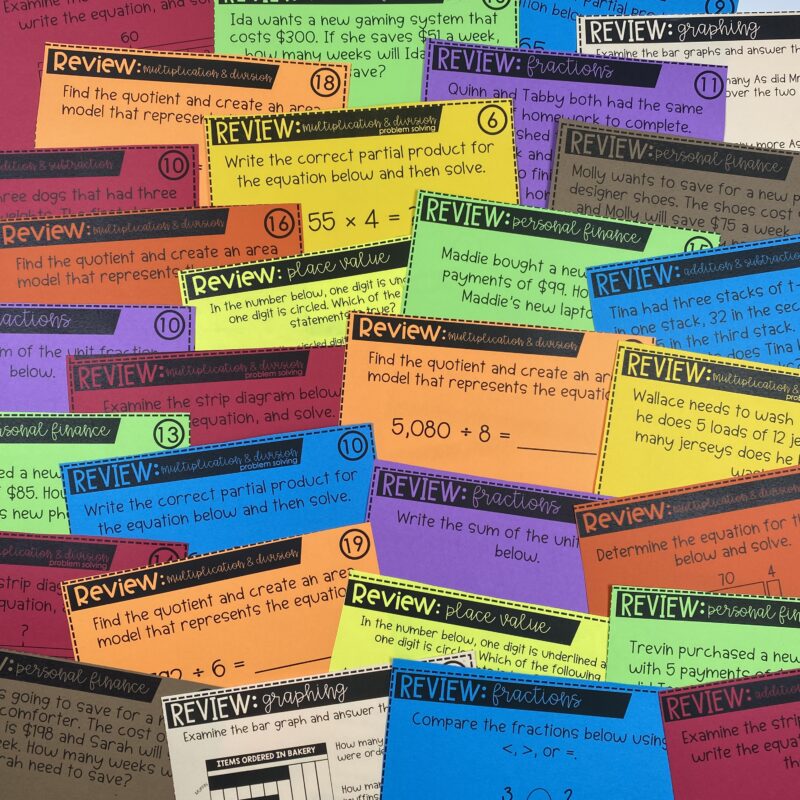 Examine the
write the equation, and
60
Ida wants a new gaming system that
costs $300. If she saves $51 a week,
how many weeks will Ida
save?
65
9
REVIEW: graphing
Examine the bar graphs and answer th
many As did Mr
over the two
many more As
Review: multiplication & division
18
Find the quotient and create an area
model that represen
REVIEW: fractions
11
Quinn and Tabby both had the same
homework to complete.
REVIEW: multiplication & division
problem solving
6
Write the correct partial product for
the equation below and then solve.
55 × 4 =
REVIEW: personal finance
Molly wants to save for a new p
designer shoes. The shoes cost
and Molly will save $75 a week
addition & subtraction
10
three dogs that had three
REVIEW: multiplication & division
16
Find the quotient and create an area
model that represents th
REVIEW: personal finance
15
Maddie bought a new
payments of $99. Ho
Maddie's new lapto
Review: place value
In the number below, one digit is und
one digit is circled. Which of the
statements true?
circled digit
REVIEW: addition & subtraction
Tina had three stacks of t-
in one stack, 32 in the seco
5 in the third stack.
does Tina
fractions
10
m of the unit fraction
below.
REVIEW: multiplication & division
problem solving
Examine the strip diagram below,
equation, and solve.
Review: multiplication & division
Find the quotient and create an ar
model that represents the equation
5,080 ÷ 8 =
REVIEW: multiplication &
Wallace needs to wash
he does 5 loads of 12 je
many jerseys does he
was
personal finance
13
ed a new
$85. How
s new pho
REVIEW: multiplication & division
problem solving
10
Write the correct partial product for
the equation below and then solve.
REVIEW: fractions
Write the sum of the unit
below.
REVIEW: multiplication & division
Determine the equation for th
below and solve.
70 4
multiplication & division
problem solving
14
strip diag
quation,
?
Review: multiplication & division
19
Find the quotient and create an area
model that represents the equatio
÷ 6 =
Review: place value
In the number below, one digit is underlined a
one digit is circled. Which of the following
REVIEW: personal finan
Trevin purchased a new
with 5 payments of
personal finance
s going to save for a
comforter. The cost o
is $198 and Sarah will
eek. How many weeks w
rah need to save?
REVIEW: graphing
Examine the bar graph and answer th
ITEMS ORDERED IN BAKERY
How many
were orde
How many
muffins
REVIEW: fractions
Compare the fractions below using
<, >, or =.
3 2
REVIEW: addition
Examine the strip
write the equa
th